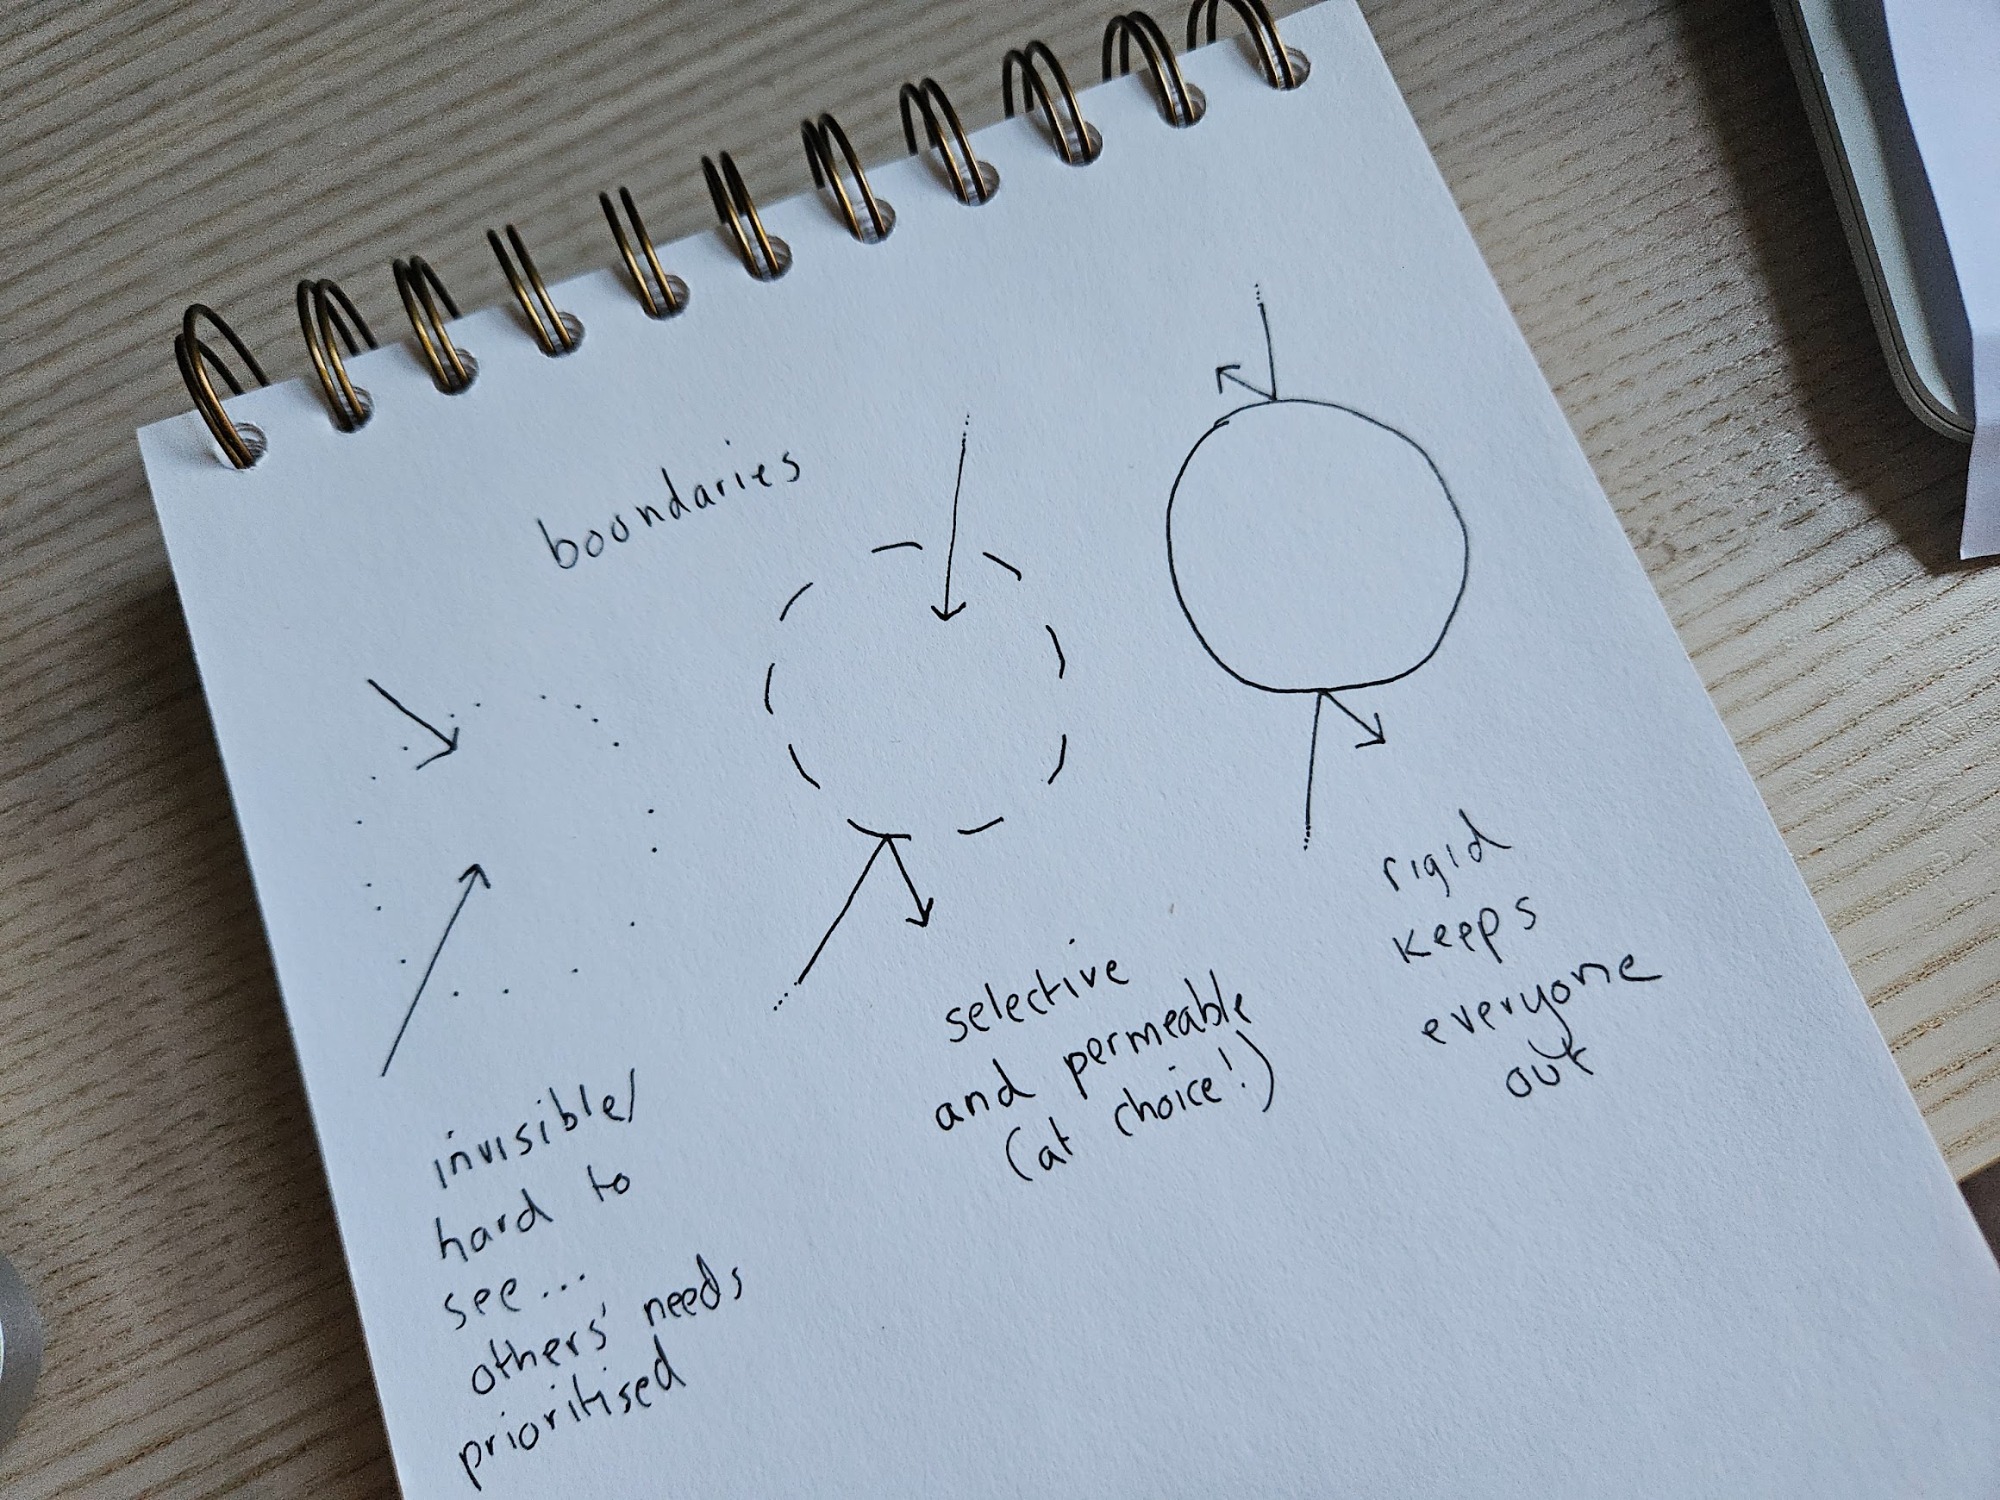 boundaries
invisible/
hard to
see...
others' needs
prioritised
selective
and permeable
(at choice!)
rigid
keeps
everyone
out